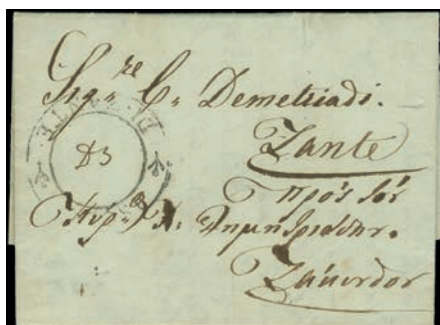 Sig.re C. Demetriadi.
Zante
πρὸς τὸν
Κύρ. Κ: Δημητριάδην.
Ζάκυνθον